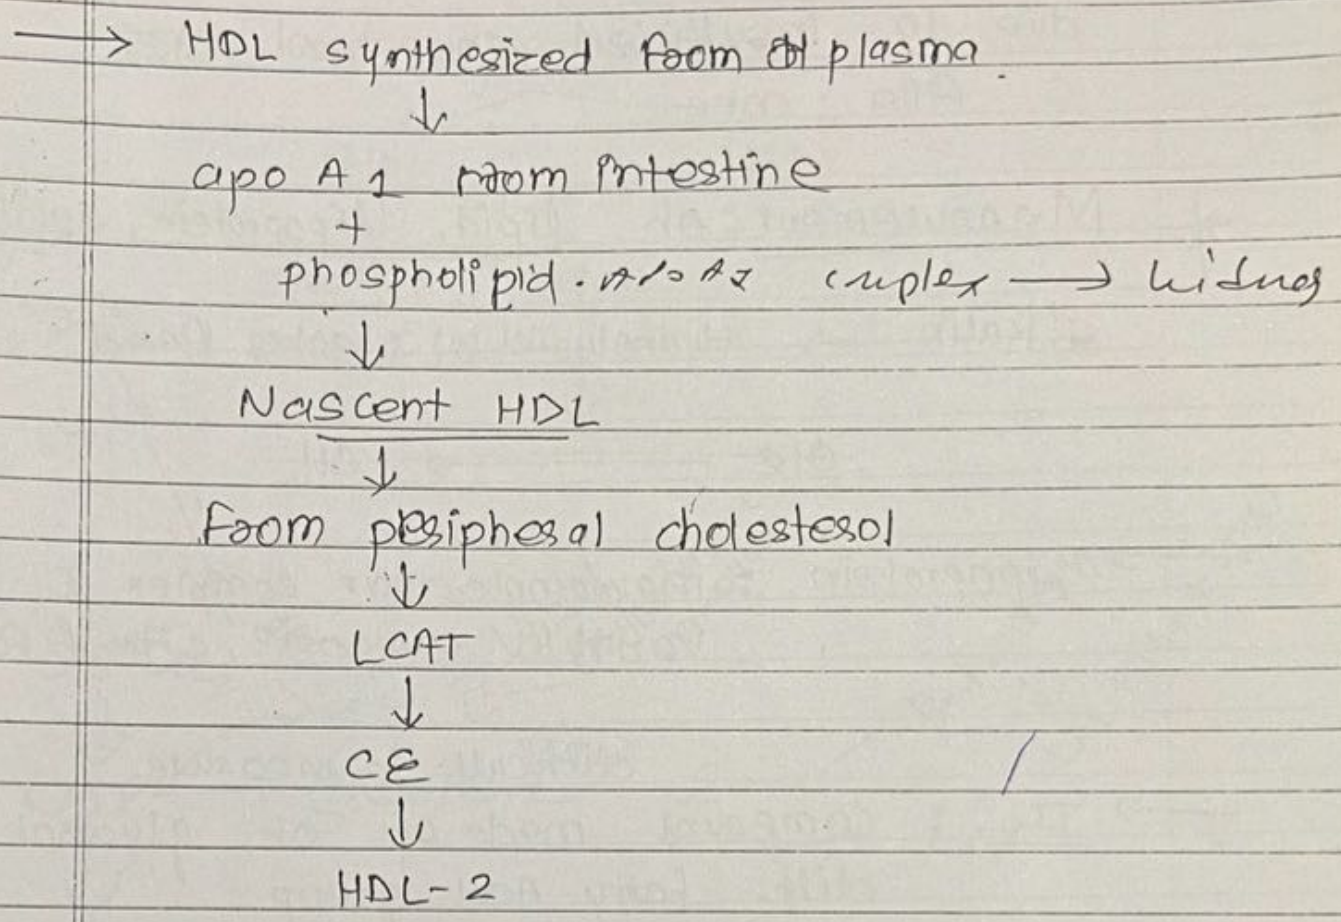 → HDL synthesized from plasma.
↓
apo A1 from intestine
+
phospholipid. complex → kidney
↓
Nascent HDL
↓
from peripheral cholesterol
↓
LCAT
↓
CE
↓
HDL-2